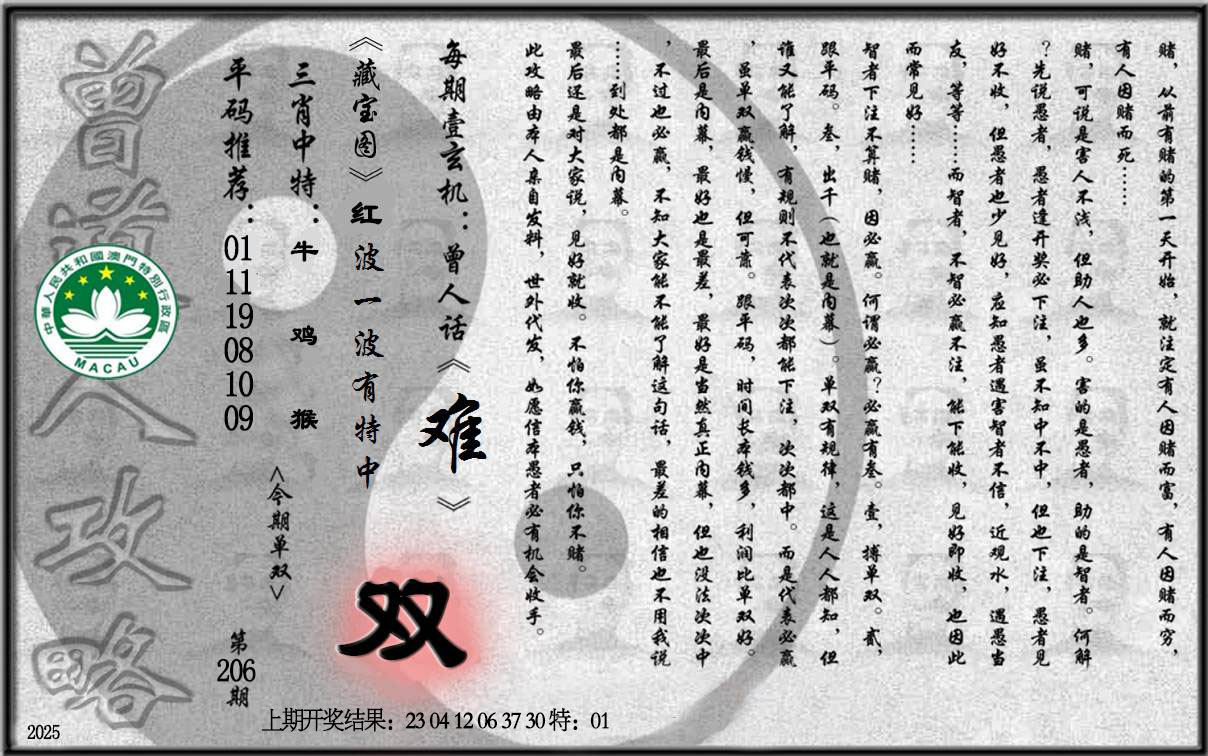 赌，从前有赌的第一天开始，就注定有人因赌而富，有人因赌而穷，
有人因赌而死……
赌，可说是害人不浅，但助人也多。害的是愚者，助的是智者。何解
？先说愚者，愚者逢开奖必下注，虽不知中不中，但也下注，愚者见
好不收，但愚者也少见好，应知愚者遇害智者不信，近观水，遇愚当
友，等等……而智者，不智必赢不注，能下能收，见好即收，也因此
而常见好……
智者下注不算赌，因必赢。何谓必赢？必赢有叁。壹，搏单双。贰，
跟平码。叁，出千（也就是内幕）。单双有规律，这是人人都知，但
谁又能了解，有规则不代表次次都能下注，次次都中。而是代表必赢
，虽单双赢钱慢，但可靠。跟平码，时间长本钱多，利润比单双好。
最后是内幕，最好也是最差，最好是当然真正内幕，但也没法次次中
，不过也必赢，不知大家能不能了解这句话，最差的相信也不用我说
……到处都是内幕。
最后还是对大家说，见好就收。不怕你赢钱，只怕你不赌。
此攻略由本人亲自发料，世外代发，如愿信本愚者必有机会收手。
每期壹玄机：曾人话《难》
《藏宝图》红波一波有特中
双
三肖中特：牛 鸡 猴
<今期单双>
平码推荐：01 11 19 08 10 09
第206期
曾道人攻略
中華人民共和國澳門特別行政區
MACAU
上期开奖结果：23 04 12 06 37 30 特：01
2025